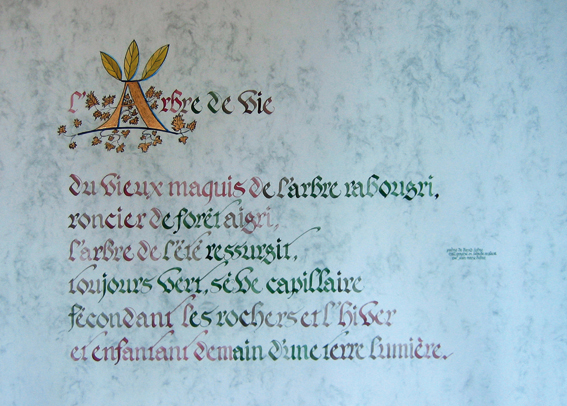 l'Arbre de Vie
du vieux maquis de l'arbre rabougri,
roncier de forêt aigri,
l'arbre de l'été ressurgit,
toujours vert, sève capillaire
fécondant les rochers et l'hiver
et enfantant demain d'une terre lumière.